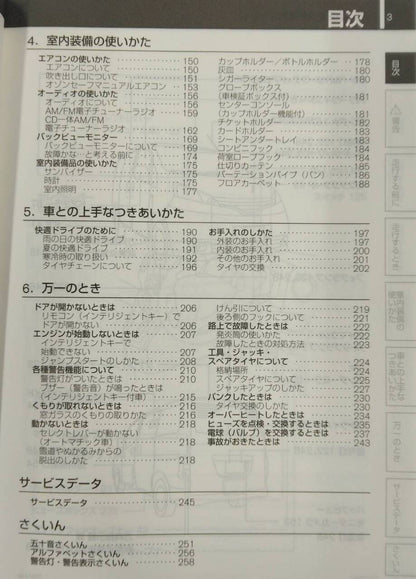 目次 3
4. 室内装備の使いかた
エアコンの使いかた 150
エアコンについて 150
吹き出し口について 151
オゾンセーフマニュアルエアコン 153
オーディオの使いかた 156
オーディオについて 156
AM/FM電子チューナーラジオ 159
CD一体AM/FM
電子チューナーラジオ 162
バックビューモニター 169
バックビューモニターについて 169
故障かな…と考える前に 174
室内装備品の使いかた 175
サンバイザー 175
時計 175
室内照明 177
カップホルダー／ボトルホルダー 178
灰皿 180
シガーライター 180
グローブボックス
(車検証ボックス付) 181
センターコンソール
(カップホルダー機能付) 181
チケットホルダー 182
カードホルダー 183
シートアンダートレイ 183
コンビニフック 184
荷室ロープフック 184
仕切りカーテン 185
パーテーションパイプ（バン） 186
フロアカーペット 188
5. 車との上手なつきあいかた
快適ドライブのために 190
雨の日の快適ドライブ 190
夏の快適ドライブ 191
寒冷時の取り扱い 192
タイヤチェーンについて 196
お手入れのしかた 197
外装のお手入れ 197
内装のお手入れ 200
その他のお手入れ 201
タイヤの交換 202
6. 万一のとき
ドアが開かないときは 206
リモコン（インテリジェントキー）で
ドアが開かない 206
エンジンが始動しないときは 207
インテリジェントキーで
始動できない 207
ジャンプスタートのしかた 208
各種警告機能について 210
警告灯がついたときは 210
ブザー（警告音）が鳴ったときは
(インテリジェントキー付車) 215
くもりが取れないときは 216
窓ガラスのくもりの取りかた 216
動かないときは 218
セレクトレバーが動かない
(オートマチック車) 218
雪道やぬかるみからの
脱出のしかた 218
けん引について 219
後ろ側のフックについて 221
路上で故障したときは 222
発炎筒の使いかた 222
故障したときの対処方法 223
工具・ジャッキ・
スペアタイヤについて 224
格納場所 224
スペアタイヤについて 225
ジャッキアップのしかた 227
パンクしたときは 230
タイヤ交換のしかた 230
オーバーヒートしたときは 234
ヒューズを点検・交換するときは 235
電球（バルブ）を交換するときは 237
事故がおきたときは 243
サービスデータ
サービスデータ 245
さくいん
五十音さくいん 251
アルファベットさくいん 256
警告灯・警告表示さくいん 258
目次
警告
走行する前に
走行するとき
室内装備の
使いかた
車との上手な
つきあいかた
万一のとき
サービスデータ
さくいん